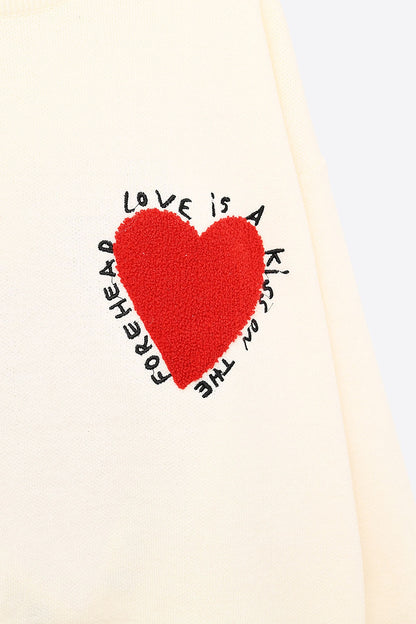 LOVE iS A KiSS ON THE FOREHEAD